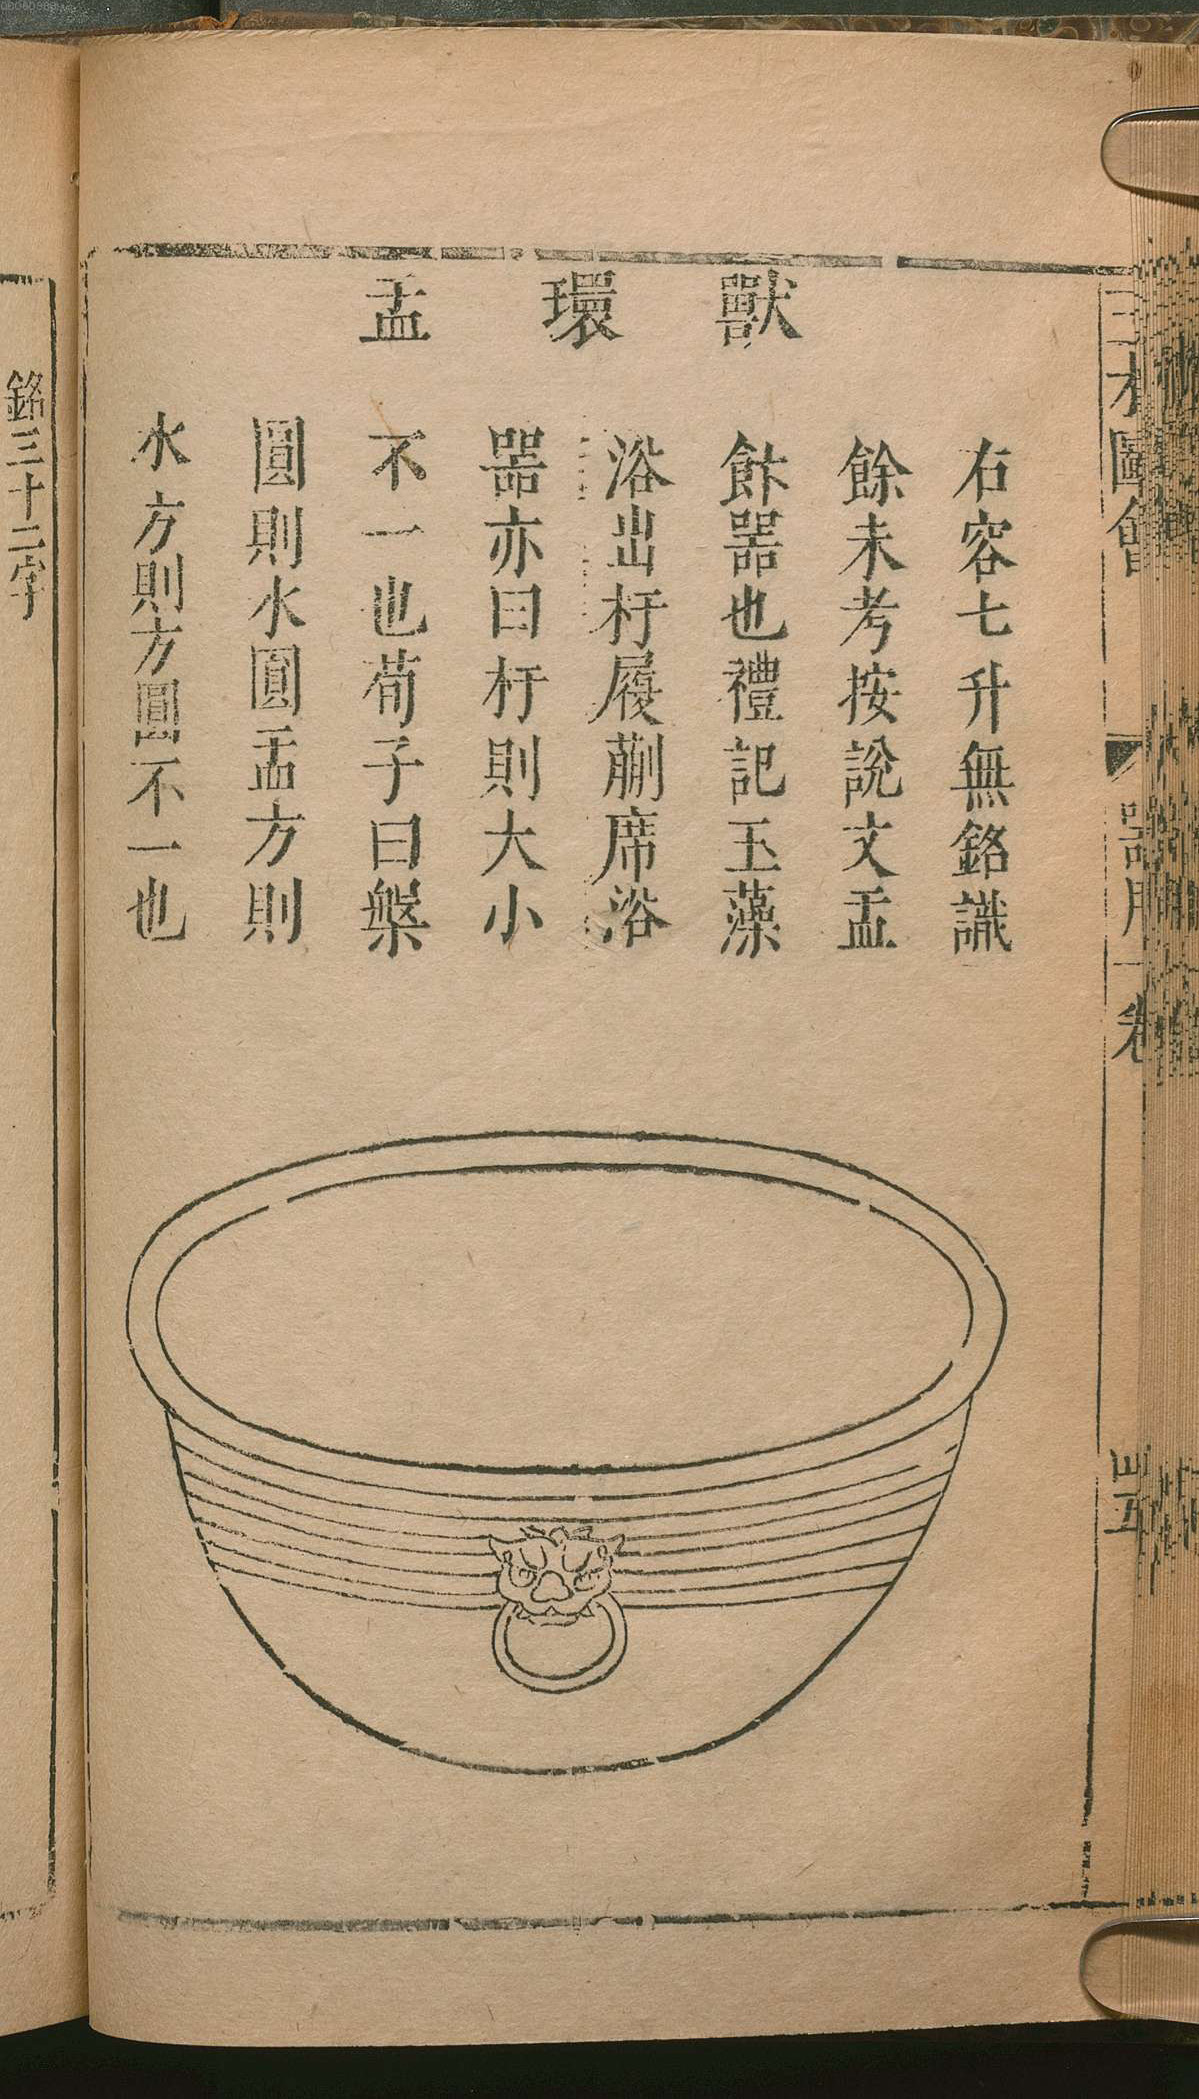 獸環盂
右容七升無銘識
餘未考按說文盂
飰器也禮記玉藻
浴出杅履蒯席浴
器亦曰杅則大小
不一也荀子曰槃
圓則水圓盂方則
水方則方圓不一也
銘三十二字